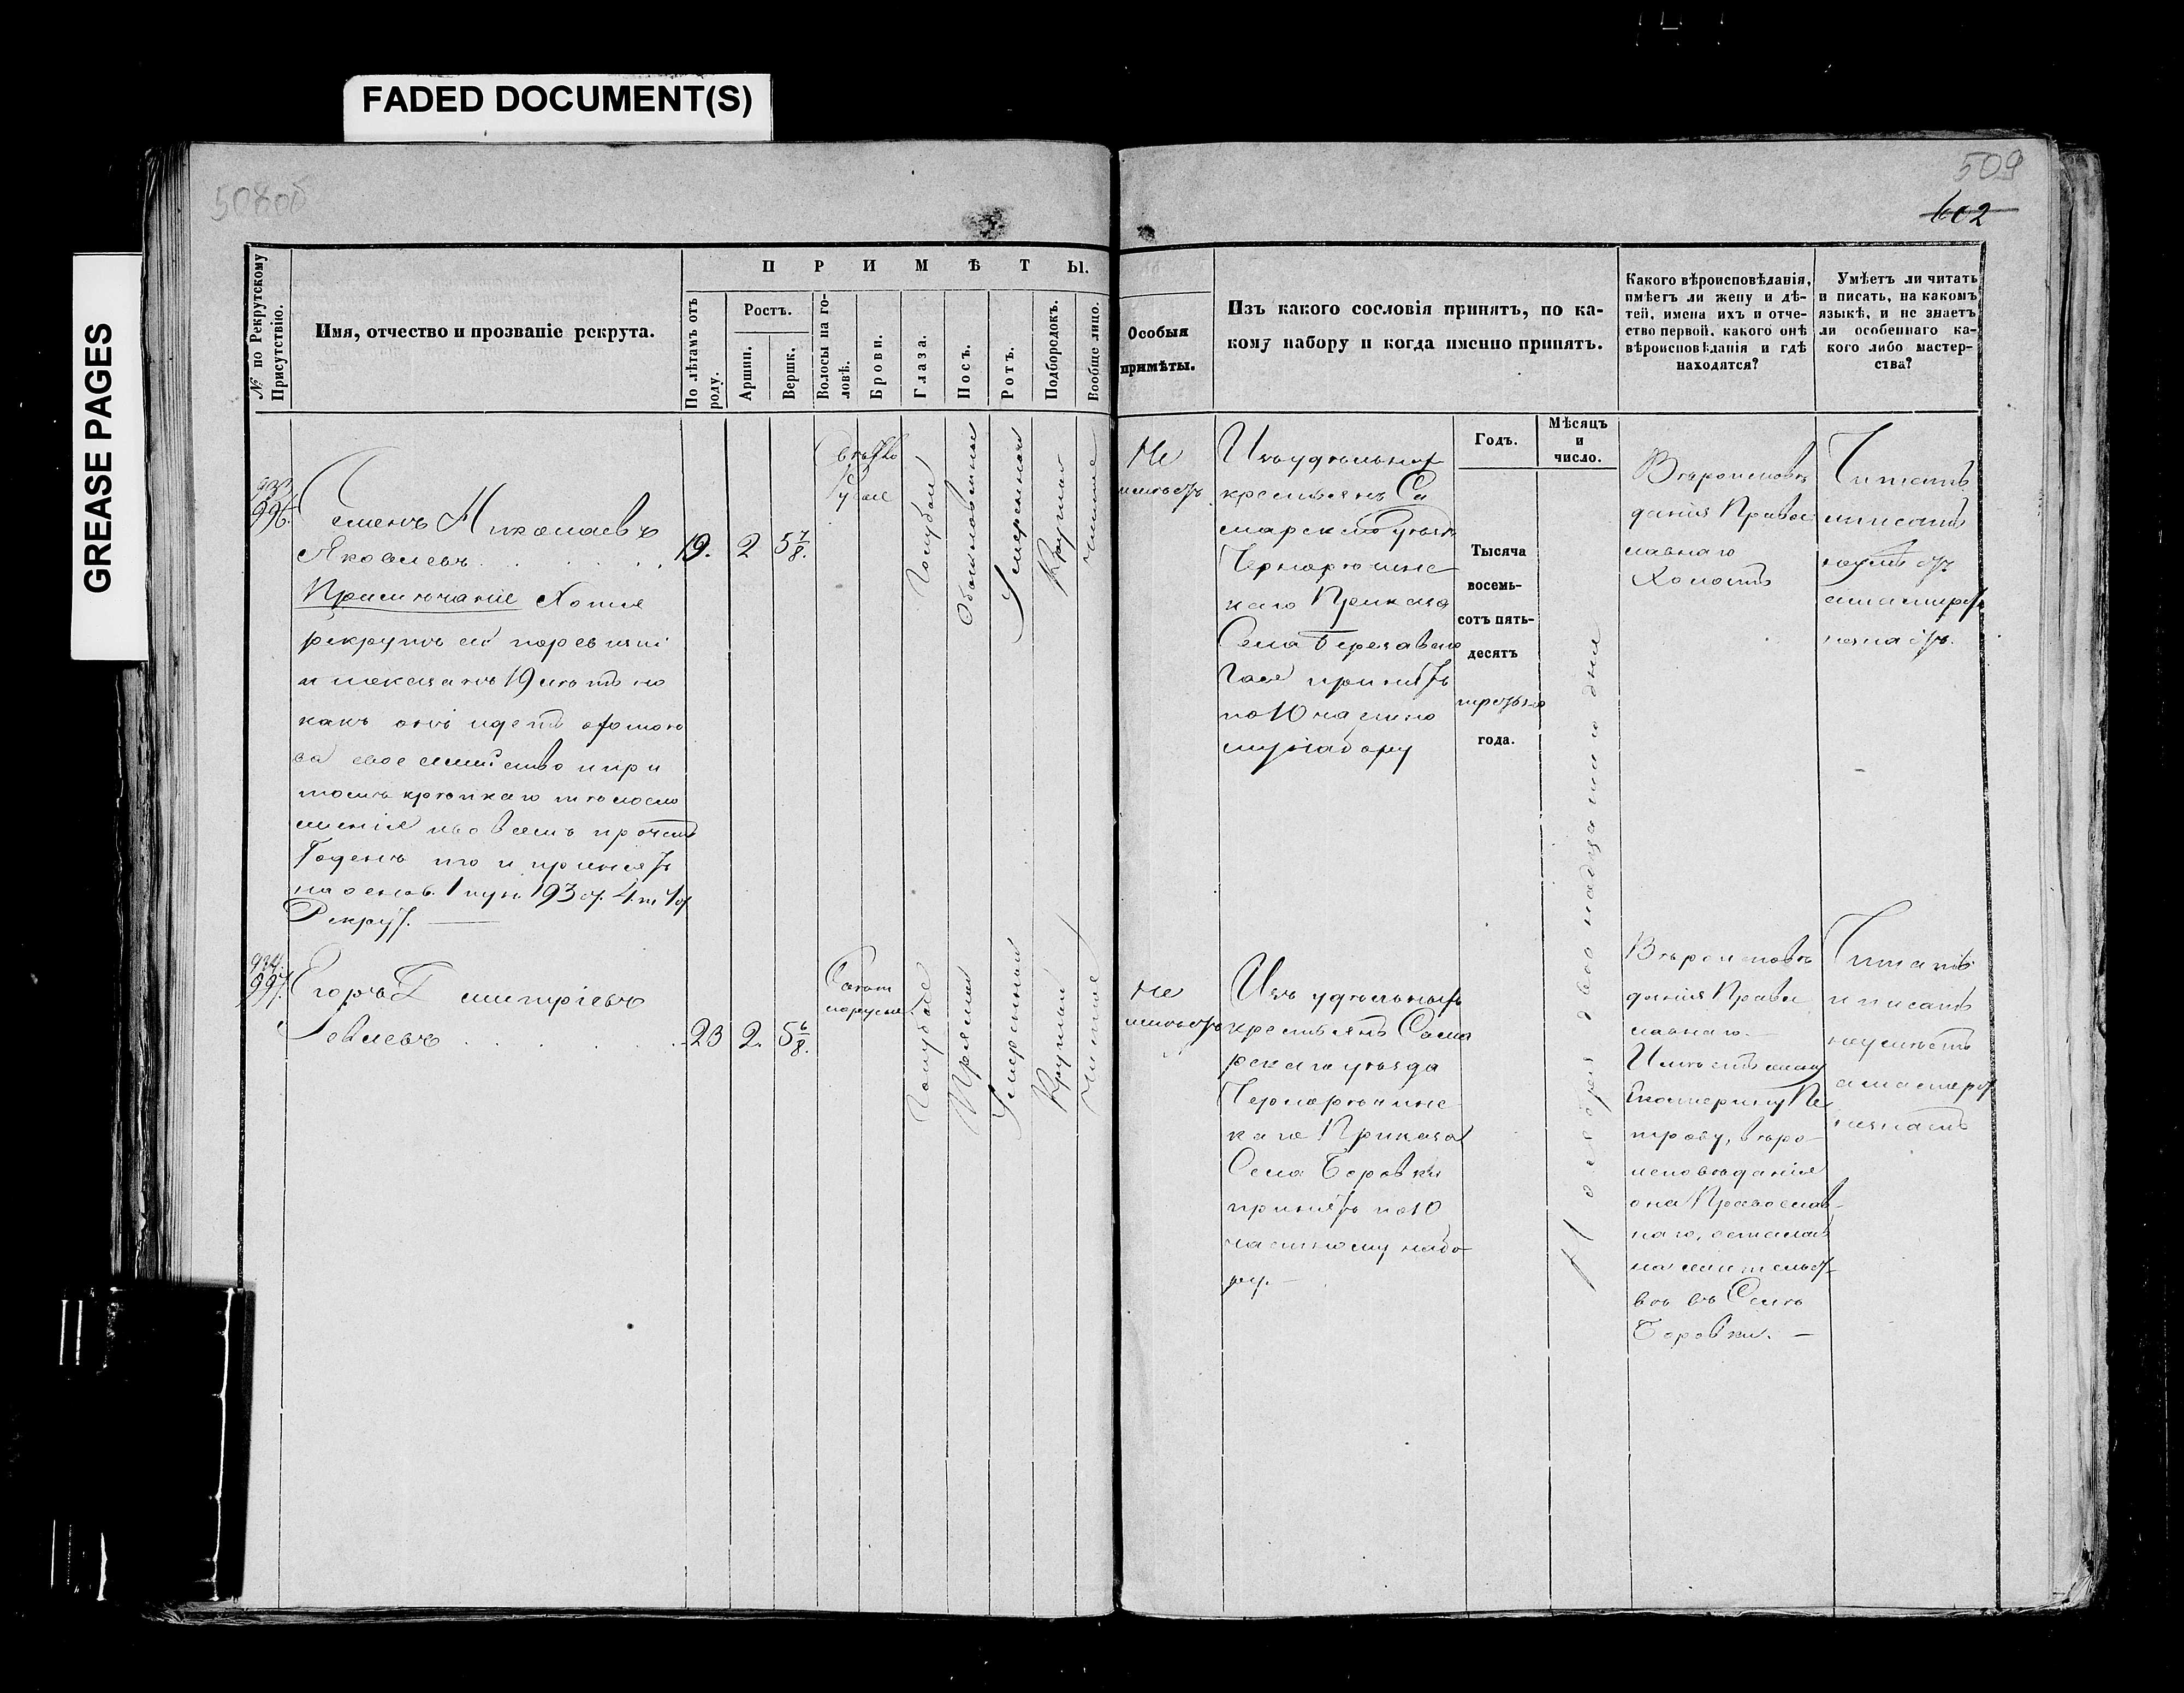 FADED DOCUMENT(S)
GREASE PAGES
508об
509
602
№ по Рекрутскому Присутствію.
Имя, отчество и прозваніе рекрута.
ПРИМѢТЫ.
По лѣтамъ отъ роду.
Ростъ.
Аршин.
Вершк.
Волосы на головѣ.
Брови.
Глаза.
Носъ.
Ротъ.
Подбородокъ.
Вообще лицо.
Особыя
примѣты.
Изъ какого сословія принятъ, по ка-
кому набору и когда именно принятъ.
Годъ.
Мѣсяцъ
и
число.
Какого вѣроисповѣданія,
имѣетъ ли жену и дѣ-
тей, имена ихъ и отче-
ство первой, какого онѣ
вѣроисповѣданія и гдѣ
находятся?
Умѣетъ ли читать
и писать, на какомъ
языкѣ, и не знаетъ
ли особеннаго ка-
кого либо мастер-
ства?
996.
Семенъ Николаевъ
Яковлевъ
Примѣчаніе Хотя
рекрутъ сей по ревизіи
и показанъ 19 лѣтъ но
какъ онъ идетъ охотою
за свое семейство и при
томъ крѣпкаго тѣлосло
женія и во всемъ прочемъ
Годенъ то и принятъ
на основ. 1 пун. 193 ст. 4 т.
Рекрут.
19.
2
5 7/8.
Свѣтло
Русые
Голубые
Обыкновенный
Умеренный
Круглый
Чистое
Не
имѣетъ
Изъ удѣльныхъ
крестьянъ Са
марскаго уѣзда
Чернорѣчинс
каго Приказа
Села Березоваго
Гая принятъ
по 10 частно
му набору
Тысяча
восемь-
сотъ пять-
десятъ
третьяго
года.
Ноября двѣнадцатаго дня
Вѣроисповѣ
данія Право
славнаго
Холостъ
Читать
и писать
неумѣетъ
а мастерст
незнаетъ.
997.
Егоръ Дмитріевъ
Левлевъ
23
2.
5 6/8.
Голубые
Прямой
Умеренный
Круглый
Чистое
Не
имѣетъ
Изъ удѣльныхъ
крестьянъ Сама
рскаго уѣзда
Чернорѣчинс
каго Приказа
Села Боровки
принятъ по 10
частному набо
ру.
Вѣроисповѣ
данія Право
славнаго.
Имѣетъ жену
Екатерину Пе
трову, вѣро
исповѣданія
она Православ-
наго, осталась
на жительст-
вѣ въ Селѣ
Боровки.
Читать
и писать
неумѣетъ
а мастерст
незнаетъ